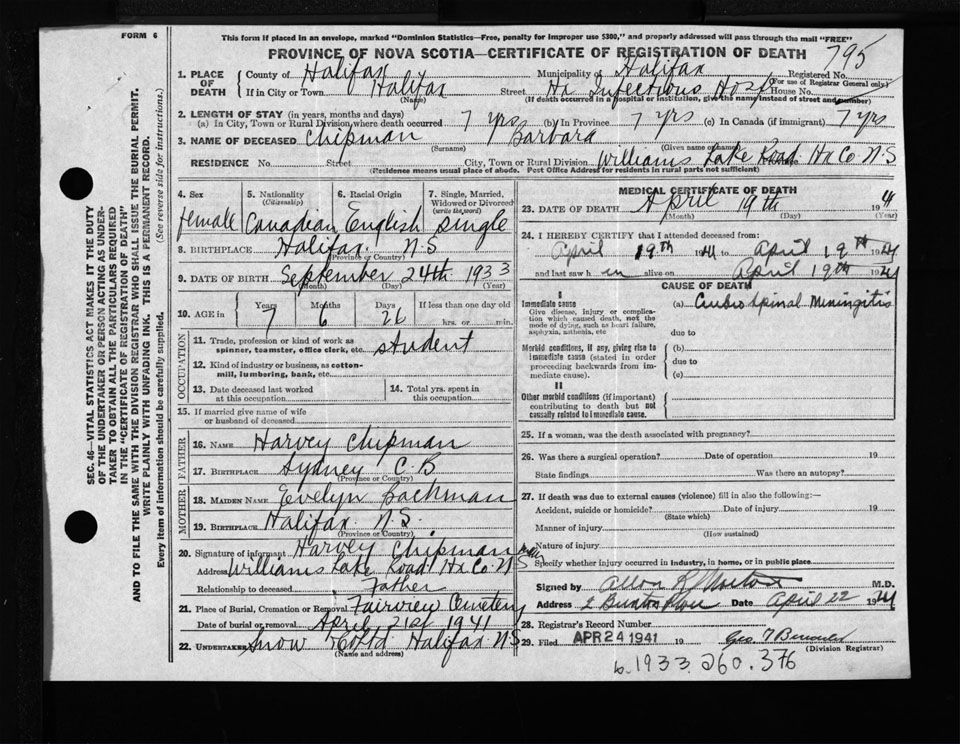 FORM 6
This form if placed in an envelope, marked "Dominion Statistics—Free, penalty for improper use $300," and properly addressed will pass through the mail "FREE"
PROVINCE OF NOVA SCOTIA—CERTIFICATE OF REGISTRATION OF DEATH
795
1. PLACE OF DEATH
County of Halifax Municipality of Halifax Registered No.
(For use of Registrar General only)
If in City or Town Halifax Street Hx Infectious Hosp House No.
(Name) (If death occurred in a hospital or institution, give the name instead of street and number)
2. LENGTH OF STAY (in years, months and days)
(a) In City, Town or Rural Division where death occurred 7 yrs (b) In Province 7 yrs (c) In Canada (if immigrant) 7 yrs
3. NAME OF DECEASED Chipman Barbara
(Surname) (Given name or names)
RESIDENCE No. Street City, Town or Rural Division Williams Lake Road Hx Co N.S
(Residence means usual place of abode. Post Office Address for residents in rural parts not sufficient)
4. Sex female
5. Nationality (Citizenship) Canadian
6. Racial Origin English
7. Single, Married, Widowed or Divorced (write the word) Single
8. BIRTHPLACE Halifax N.S
(Province or Country)
9. DATE OF BIRTH September 24th 1933
(Month) (Day) (Year)
10. AGE in Years Months Days If less than one day old
7 6 26 hrs. or min.
OCCUPATION
11. Trade, profession or kind of work as spinner, teamster, office clerk, etc. student
12. Kind of industry or business, as cotton-mill, lumbering, bank, etc.
13. Date deceased last worked at this occupation
14. Total yrs. spent in this occupation
15. If married give name of wife or husband of deceased
FATHER
16. NAME Harvey Chipman
17. BIRTHPLACE Sydney C.B
(Province or Country)
MOTHER
18. MAIDEN NAME Evelyn Bachman
19. BIRTHPLACE Halifax N.S.
(Province or Country)
20. Signature of informant Harvey Chipman
Address Williams Lake Road Hx Co. N.S
Relationship to deceased Father
21. Place of Burial, Cremation or Removal Fairview Cemetery
Date of burial or removal April 21st 1941
22. UNDERTAKER Snow & Co Ltd Halifax N.S
(Name and address)
MEDICAL CERTIFICATE OF DEATH
23. DATE OF DEATH April 19th 1941
(Month) (Day) (Year)
24. I HEREBY CERTIFY that I attended deceased from
April 19th 1941 to April 19th 1941
and last saw h alive on April 19th 1941
CAUSE OF DEATH
I
Immediate cause
Give disease, injury or complication which caused death, not the mode of dying, such as heart failure, asphyxia, asthenia, etc
(a) Cerebro Spinal Miningitis
due to
Morbid conditions, if any, giving rise to immediate cause (stated in order proceeding backwards from immediate cause).
(b)
due to
(c)
II
Other morbid conditions (if important) contributing to death but not causally related to immediate cause.
25. If a woman, was the death associated with pregnancy?
26. Was there a surgical operation? Date of operation 19
State findings Was there an autopsy?
27. If death was due to external causes (violence) fill in also the following:—
Accident, suicide or homicide? Date of injury 19
(State which)
Manner of injury
(How sustained)
Nature of injury
Specify whether injury occurred in industry, in home, or in public place
Signed by Allan R. Morton M.D.
Address Date April 22 1941
28. Registrar's Record Number
29. Filed APR 24 1941 19
(Division Registrar)
b. 1933. 260. 376
SEC. 46—VITAL STATISTICS ACT MAKES IT THE DUTY
OF THE UNDERTAKER OR PERSON ACTING AS UNDER-
TAKER TO OBTAIN ALL THE PARTICULARS REQUIRED
IN THE "CERTIFICATE OF REGISTRATION OF DEATH"
AND TO FILE THE SAME WITH THE DIVISION REGISTRAR WHO SHALL ISSUE THE BURIAL PERMIT.
WRITE PLAINLY WITH UNFADING INK. THIS IS A PERMANENT RECORD.
Every item of information should be carefully supplied. (See reverse side for instructions.)